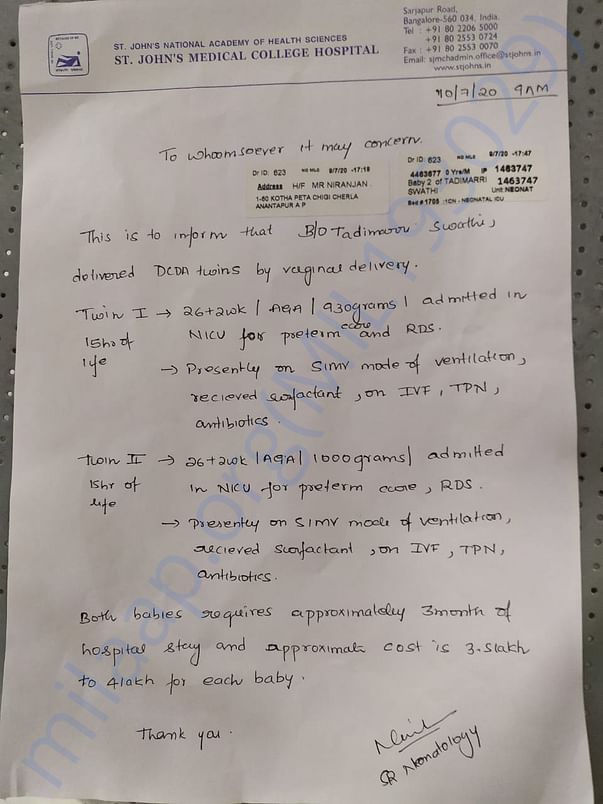 ST. JOHN'S NATIONAL ACADEMY OF HEALTH SCIENCES
ST. JOHN'S MEDICAL COLLEGE HOSPITAL
Sarjapur Road,
Bangalore-560 034. India.
Tel : +91 80 2206 5000
+91 80 2553 0724
Fax : +91 80 2553 0070
Email: sjmchadmin.office@stjohns.in
www.stjohns.in
10/7/20 9AM
To whomsoever it may concern.
Dr ID: 623 NO MLC 9/7/20 -17:19
Address H/F MR NIRANJAN
1-60 KOTHA PETA CHIGI CHERLA
ANANTAPUR A P
Dr ID: 623 NO MLC 9/7/20 -17:47
4463677 0 Yrs/M IP 1463747
Baby 2 of TADIMARRI 1463747
SWATHI Unit:NEONAT
Bed # 1705 :1CN - NEONATAL ICU
This is to inform that B/O Tadimarri Swathi,
delivered DCDA twins by vaginal delivery.
Twin I → 26+2wk | AGA | 930grams | admitted in
15hr of life NICU for preterm care and RDS.
→ Presently on SIMV mode of ventilation,
recieved surfactant, on IVF, TPN,
antibiotics.
Twin II → 26+2wk |AGA| 1000grams| admitted
15hr of life in NICU for preterm care, RDS.
→ Presently on SIMV mode of ventilation,
recieved surfactant, on IVF, TPN,
antibiotics.
Both babies requires approximately 3month of
hospital stay and approximate cost is 3.5lakh
to 4lakh for each baby.
Thank you.
SR Neonatology